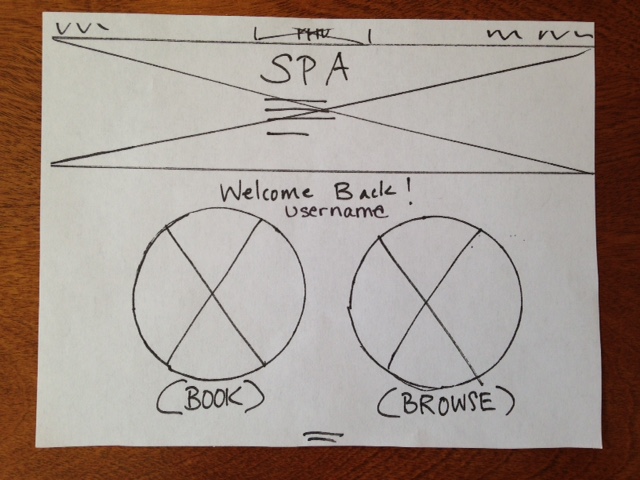 SPA
Welcome Back!
username
(BOOK)
(BROWSE)